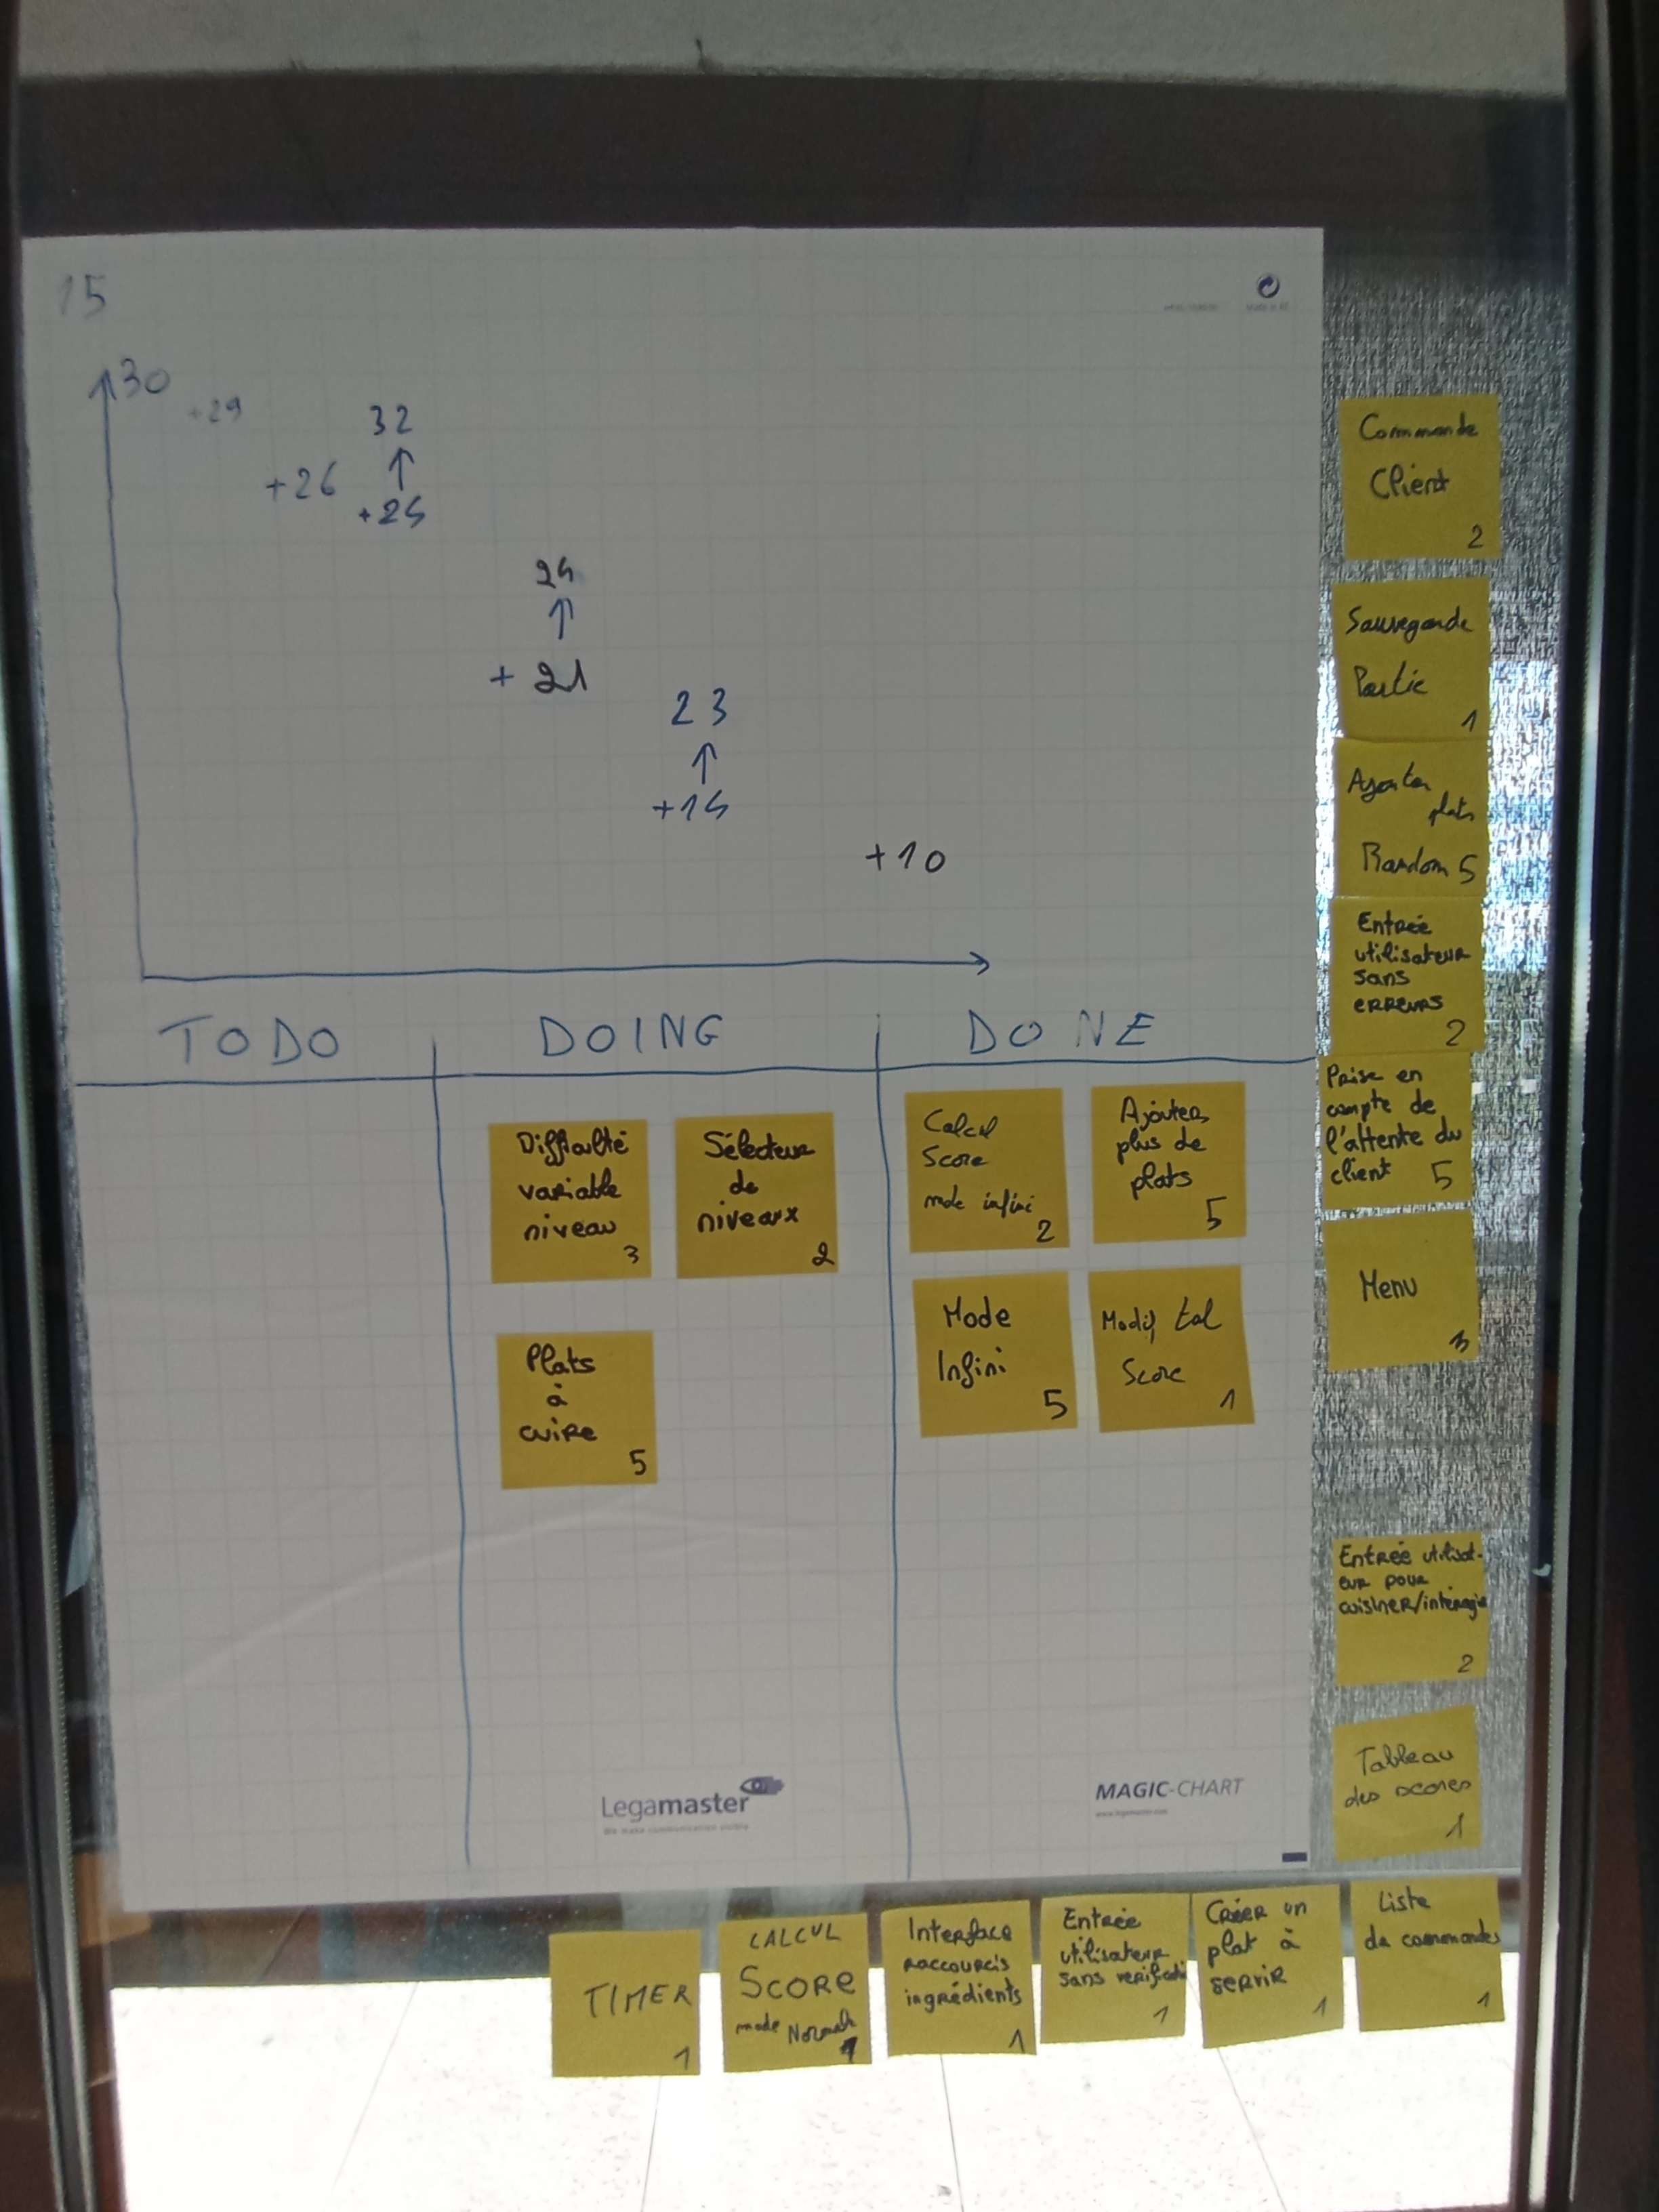 15
30
+29
32
+26
↑
+25
24
↑
+ 21
23
↑
+15
+10
TODO
DOING
DONE
Difficulté
variable
niveau
3
Sélecteur
de
niveaux
2
Plats
à
cuire
5
Calcul
Score
mode infini
2
Ajouter
plus de
plats
5
Mode
Infini
5
Modif tal
Score
1
Legamaster
We make communication visible
MAGIC-CHART
www.legamaster.com
Commande
Client
2
Sauvegarde
Partie
1
Ajouter
plats
Random 5
Entrée
utilisateur
sans
erreurs
2
Prise en
compte de
l'attente du
client 5
Menu
3
Entrée utilisat-
eur pour
cuisiner/interagir
2
Tableau
des scores
1
TIMER
1
CALCUL
SCORE
mode Normale
1
Interface
raccourcis
ingrédients
1
Entrée
utilisateur
sans
1
Créer un
plat à
servir
1
Liste
de commandes
1